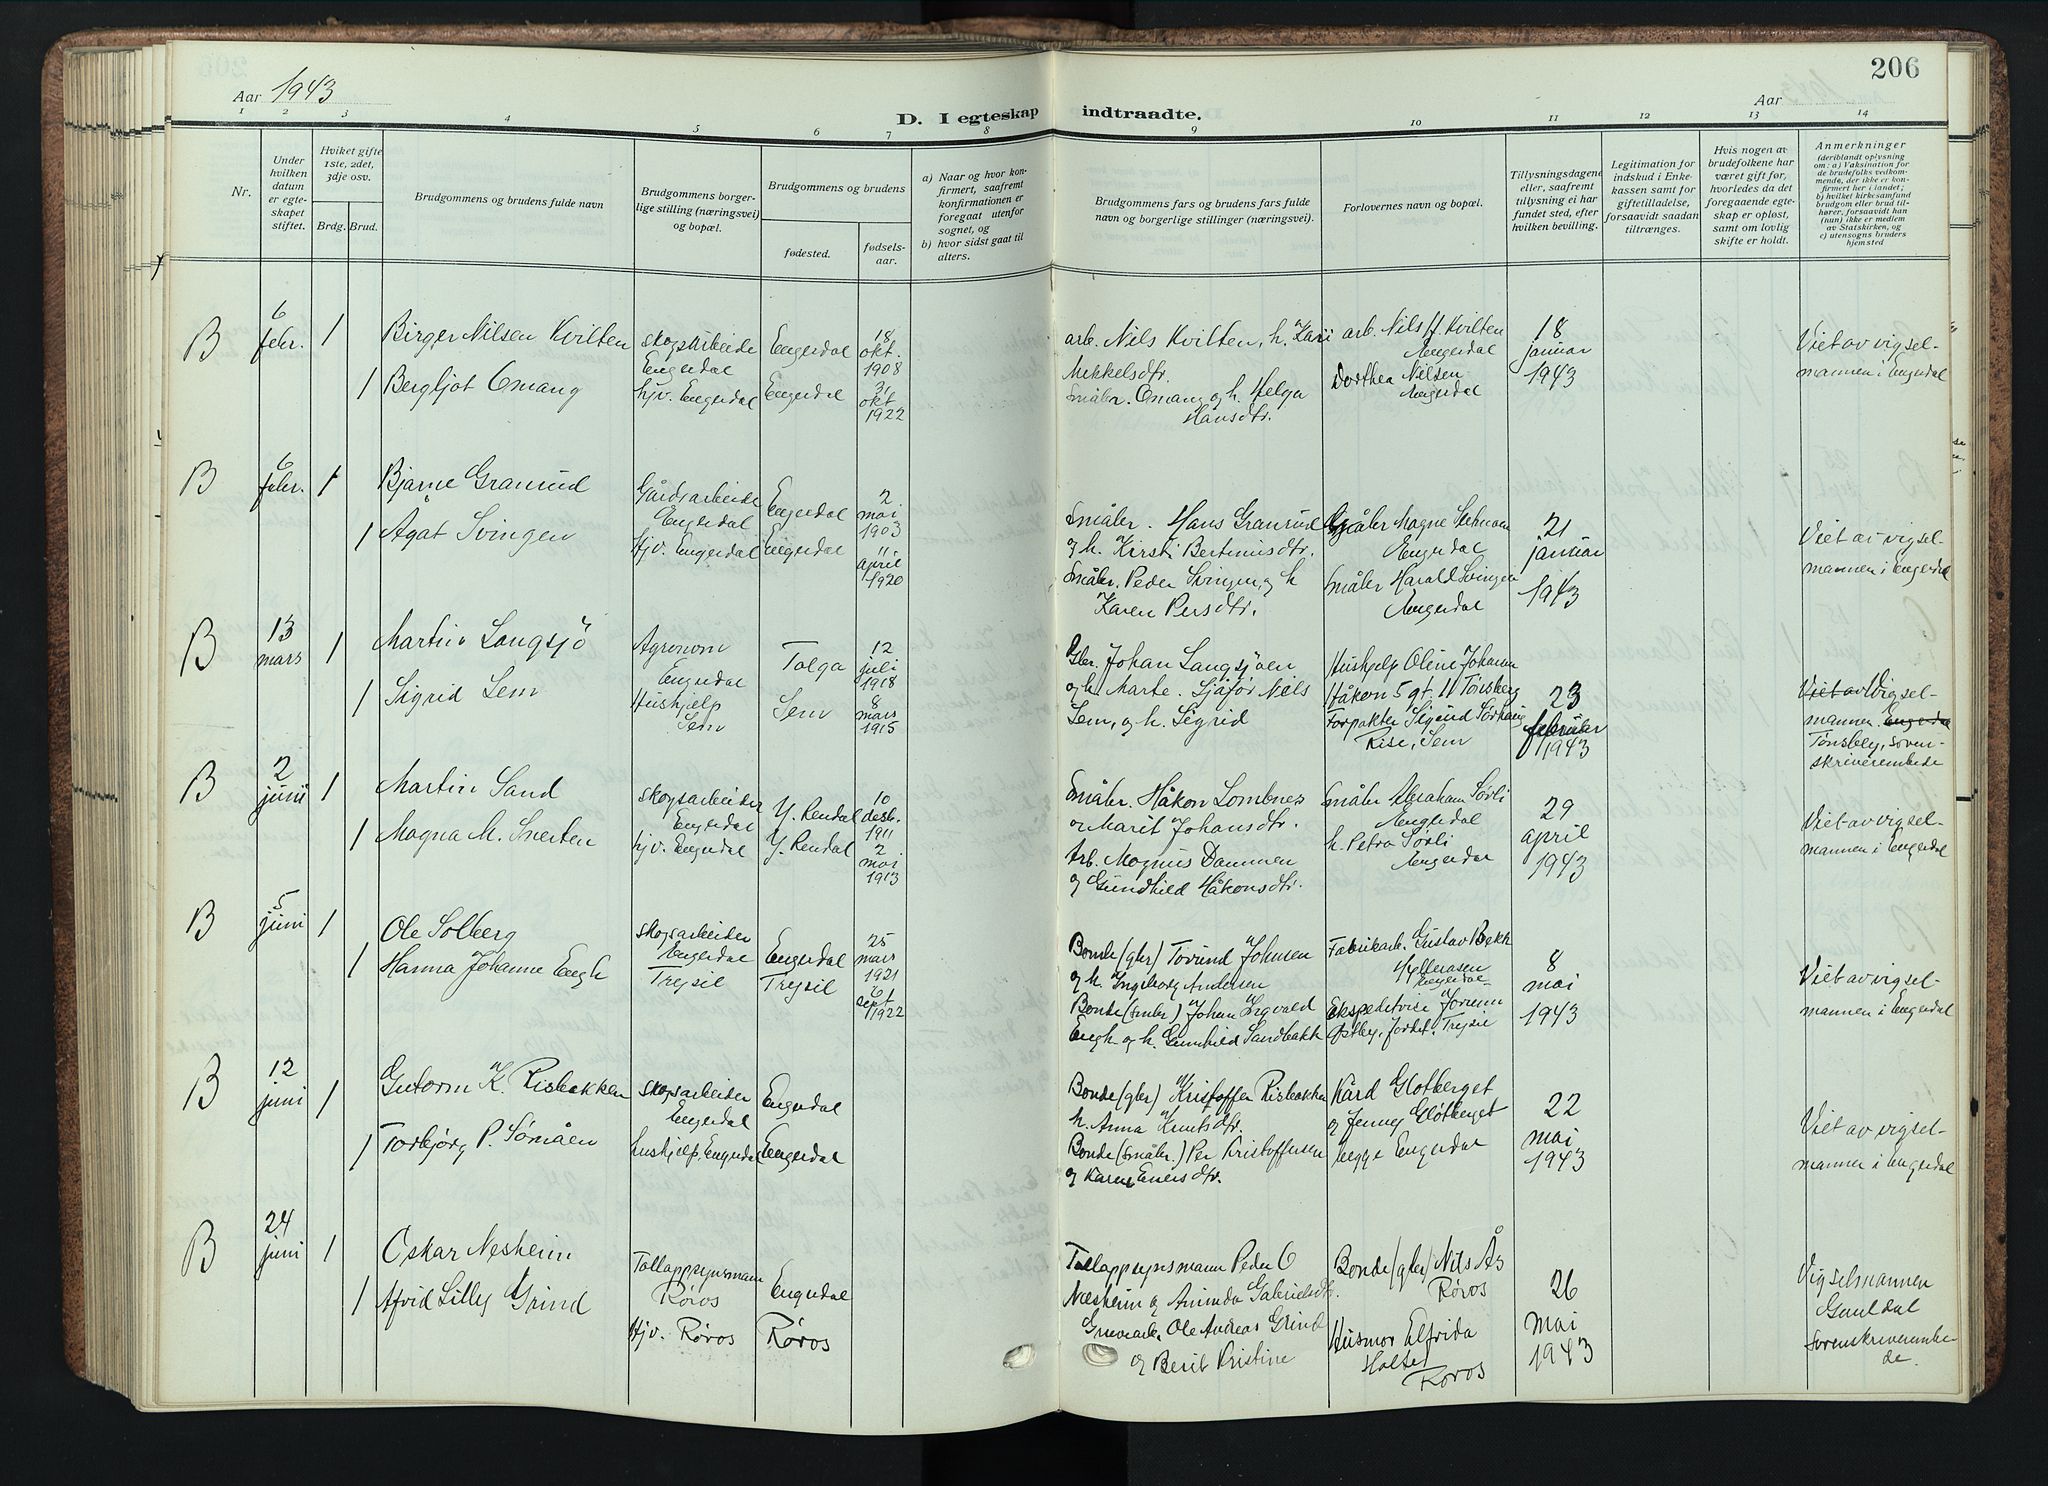 206
Aar 1943
Aar
D. I egteskap indtraadte.
1 2 3 4 5 6 7 8 9 10 11 12 13 14
Nr.
Under hvilken datum er egteskapet stiftet.
Hviket gifte 1ste, 2det, 3dje osv.
Brdg. Brud.
Brudgommens og brudens fulde navn
Brudgommens borgerlige stilling (næringsvei) og bopæl.
Brudgommens og brudens
fødested.
fødselsaar.
a) Naar og hvor konfirmert, saafremt konfirmationen er foregaat utenfor sognet, og
b) hvor sidst gaat til alters.
Brudgommens fars og brudens fars fulde navn og borgerlige stillinger (næringsvei).
Forlovernes navn og bopæl.
Tillysningsdagene eller, saafremt tillysning ei har fundet sted, efter hvilken bevilling.
Legitimation for indskud i Enkekassen samt for giftetilladelse, forsaavidt saadan tiltrænges.
Hvis nogen av brudefolkene har været gift før, hvorledes da det foregaaende egteskap er opløst, samt om lovlig skifte er holdt.
Anmerkninger
(deriblandt oplysning om: a) Vaksination for de brudefolks vedkommende, der ikke er konfirmert her i landet; b) hvilket kirkesamfund brudgom eller brud tilhører, forsaavidt han (hun) ikke er medlem av Statskirken, og c) utensogns bruders hjemsted
B
6 febr.
1
Birger Nilsen Kvilten
skogsarbeide
Engerdal
Engerdal
18 okt. 1908
arb. Nils Kvilten, h. Kari
Mekkelsdtr.
arb. Nils H. Kvilten
Engerdal
18 januar 1943
Viet av vigsel-
mannen i Engerdal
1
Bergljot Omang
hjv. Engerdal
Engerdal
31 okt 1922
Småbr. Omang og h. Helga
Hansdtr.
Dorthea Nilsen
Engerdal
B
6 febr.
1
Bjarne Granrud
Gårdsarbeide
Engerdal
Engerdal
2 mai 1903
Småbr. Hans Granrud
og h. Kirsti Bertinusdtr.
Småbr Magne
Engerdal
21 januar 1943
Viet av vigsel-
mannen i Engerdal
1
Agat Svingen
Hjv. Engerdal
Engerdal
11 april 1920
Småbr. Peder Svingen, og h
Karen Persdtr.
Småbr Harald Svingen
Engerdal
B
13 mars
1
Martin Langsjø
Agronom
Engerdal
Tolga
12 juli 1918
Gbr. Johan Langsjøen
og h. Marte. Sjåfør Nils
Hushjelp Oline Johansen
Håkon 5 gt. 11 Tønsberg
23 februar 1943
Viet av Vigsel-
mannen. Engerdal
Tønsberg, soren-
skriverembede
1
Sigrid Sem
Hushjelp
Sem
Sem
8 mars 1915
Sem, og h. Sigrid
Forpakter Sigurd
Rise, Sem
B
2 juni
1
Martin Sand
skogsarbeider
Engerdal
Y. Rendal
10 desb. 1911
Småbr. Håkon Lombnes
og Marit Johansdtr.
Småbr Abraham Sørli
Engerdal
29 april 1943
Viet av vigsel-
mannen i Engerdal
1
Magna M. Snerten
hjv. Engerdal
Y. Rendal
2 mai 1913
Arb. Magnus Dammen
og Gundhild Håkonsdtr.
h. Petra Sørli
Engerdal
B
5 juni
1
Ole Solberg
skogsarbeider
Engerdal
Engerdal
25 mars 1921
Bonde (gbr) Torund Johnsen
og h. Ingeborg Andersen
Fabrikarb. Gustav Bekk
Hylleråsen
Engerdal
8 mai 1943
Viet av vigsel-
mannen i Engerdal
1
Hanna Johanne Engh
Trysil
Trysil
6 sept 1922
Bonde (småbr) Johan Ingvald
Engh og h. Gunhild Sandbakk
Ekspeditrise
Østby, Jordet, Trysil
B
12 juni
1
Gutorm K. Risbakken
skogsarbeider
Engerdal
Engerdal
Bonde (gbr) Kristoffer Risbakken
h. Anna Knutsdtr.
Kård Gløtberget
og Jenney Gløtberget
begge Engerdal
22 mai 1943
Viet av vigsel-
mannen i Engerdal
1
Torbjørg P. Sømåen
hushjelp, Engerdal
Engerdal
Bonde (Småbr.) Per Kristoffersen
og Karen Einersdtr.
B
24 juni
1
Oskar Nesheim
Tolloppsynsmann
Røros
Engerdal
Tolloppsynsmann Peder O
Nesheim og Aminda Gabrielsdtr.
Bonde (gbr) Nils Ås
Røros
26 mai 1943
Vigselmannen
Gauldal
sorenskriverembe-
de.
1
Afvid Lilly Grind
Hjv. Røros
Røros
Gruvearb. Ole Andreas Grind
og Berit Kristine
Husmor Elfrida
Holte
Røros